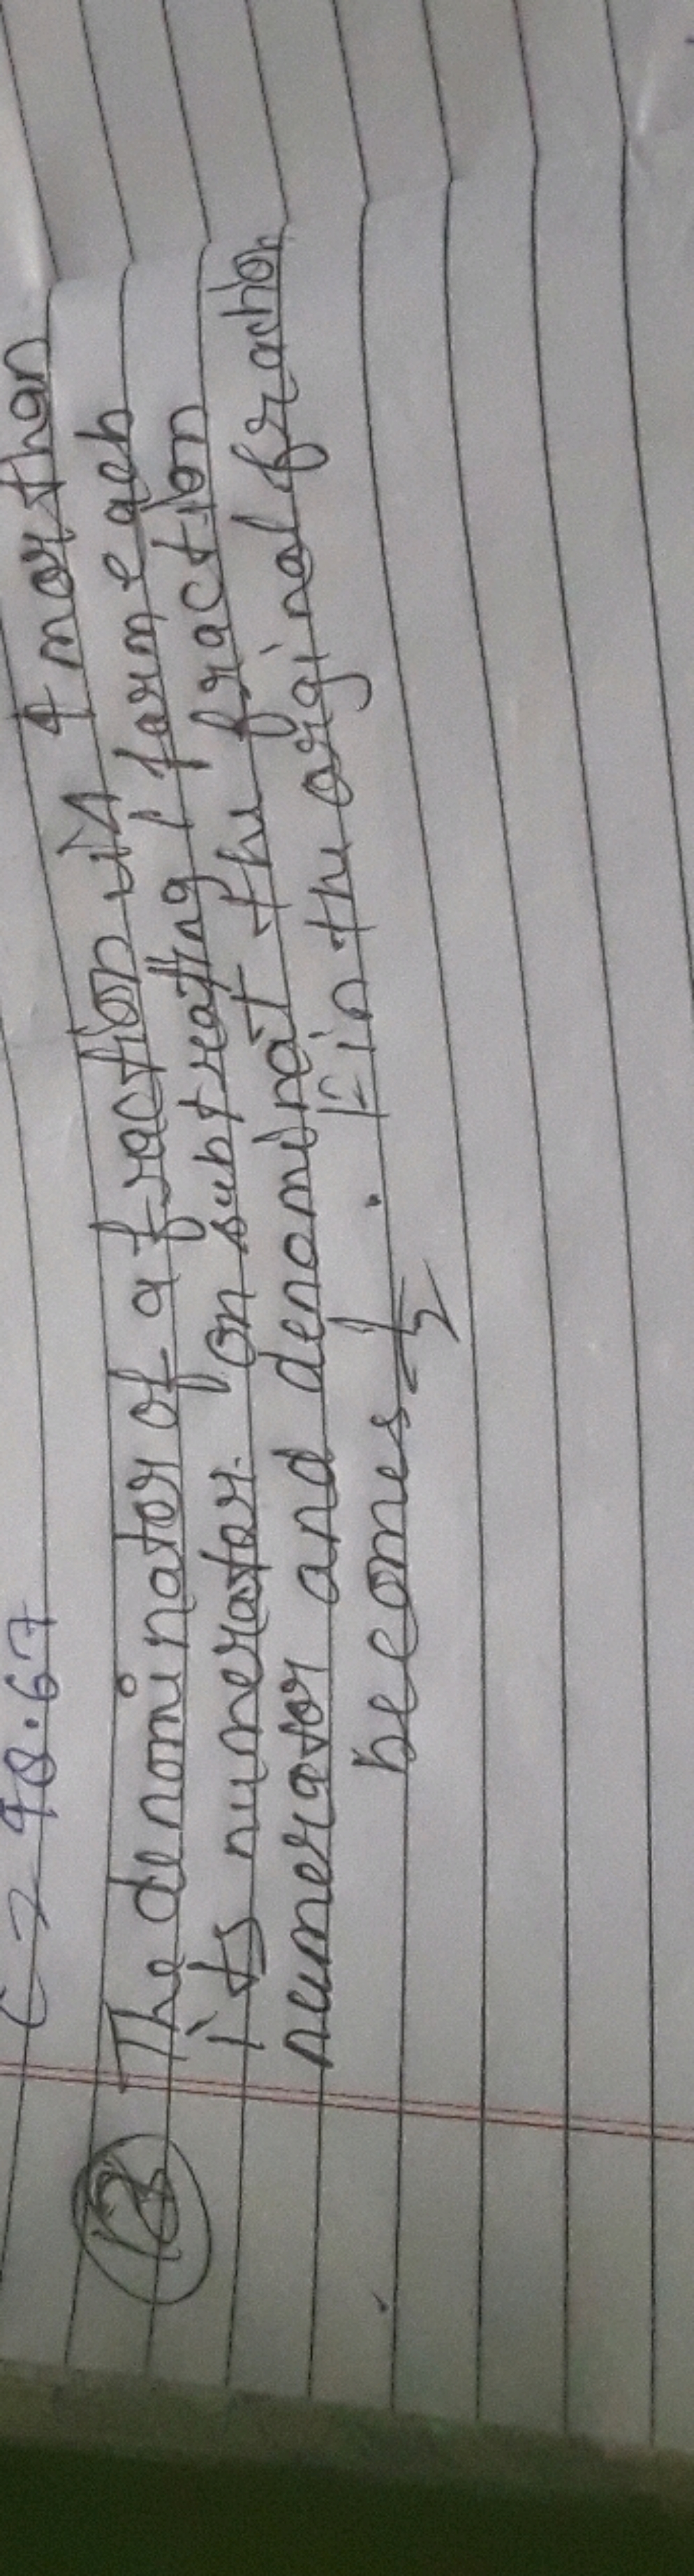 98.67
(18) The denominator of a fraction is 4 mor than
its numerator. On subtreating 1 farm each
numerator and denominat the fraction
becomes 1/2. Fin the orginal fraction